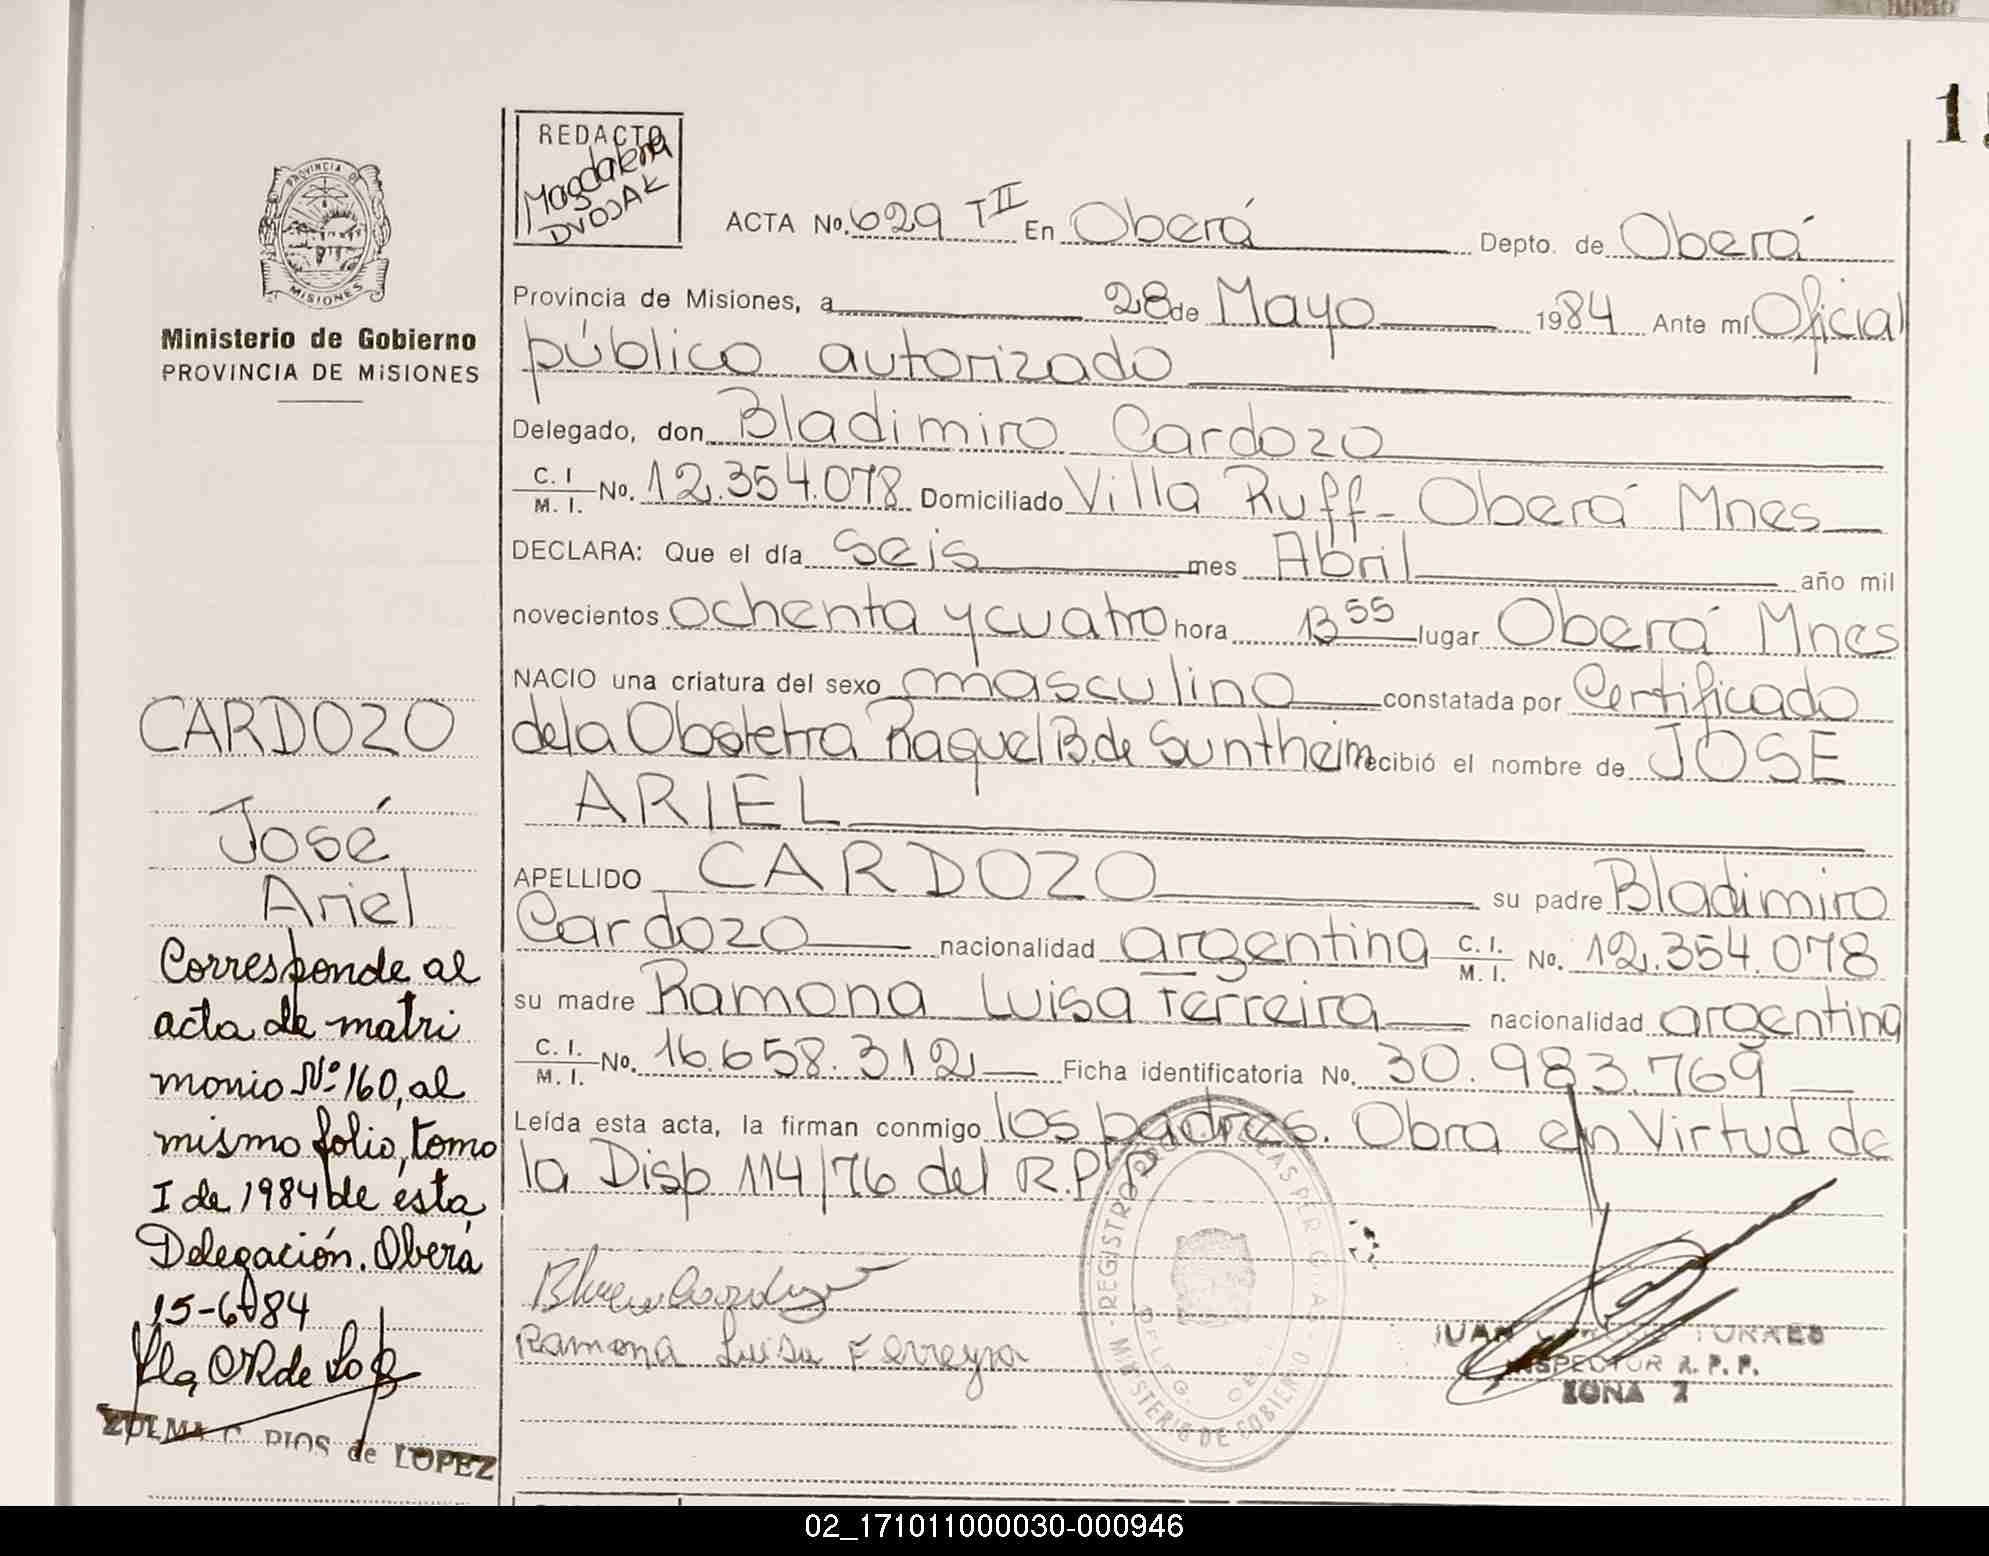 1
REDACTO
Magdalena
DVOJAK
PROVINCIA DE
MISIONES
Ministerio de Gobierno
PROVINCIA DE MISIONES
ACTA No. 629 T II En Oberá Depto. de Oberá
Provincia de Misiones, a 28 de Mayo 1984 Ante mí Oficial
público autorizado
Delegado, don Bladimiro Cardozo
C. I. / M. I. No. 12.354.078 Domiciliado Villa Ruff - Oberá Mnes
DECLARA: Que el día seis mes Abril año mil
novecientos ochenta y cuatro hora 13 55 lugar Oberá Mnes
NACIO una criatura del sexo masculino constatada por Certificado
de la Obstetra Raquel B. de Suntheim recibió el nombre de JOSE
ARIEL
APELLIDO CARDOZO su padre Bladimiro
Cardozo nacionalidad argentina C. I. / M. I. No. 12.354.078
su madre Ramona Luisa Ferreira nacionalidad argentina
C. I. / M. I. No. 16.658.312 Ficha identificatoria No. 30.983.769
Leída esta acta, la firman conmigo los padres. Obra en Virtud de
la Disp 114/76 del R.P.P
Ramona Luisa Ferreyra
JUAN TORRES
INSPECTOR R. P. P.
ZONA 2
CARDOZO
José
Ariel
Corresponde al
acta de matri
monio Nº 160, al
mismo folio, tomo
I de 1984 de esta
Delegación. Oberá
15-6-84
ZULMA C. RIOS de LOPEZ
02_171011000030-000946